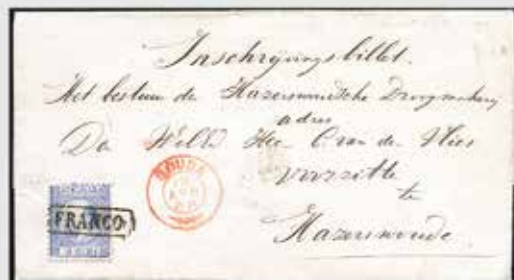 Inschrijvings billet.
Het bestuur der Hazerswoudsche Droogmakerij
adres
Den Heer C. van der Vlies
voorzitter
te
Hazerswoude.
GOUDA
FRANCO